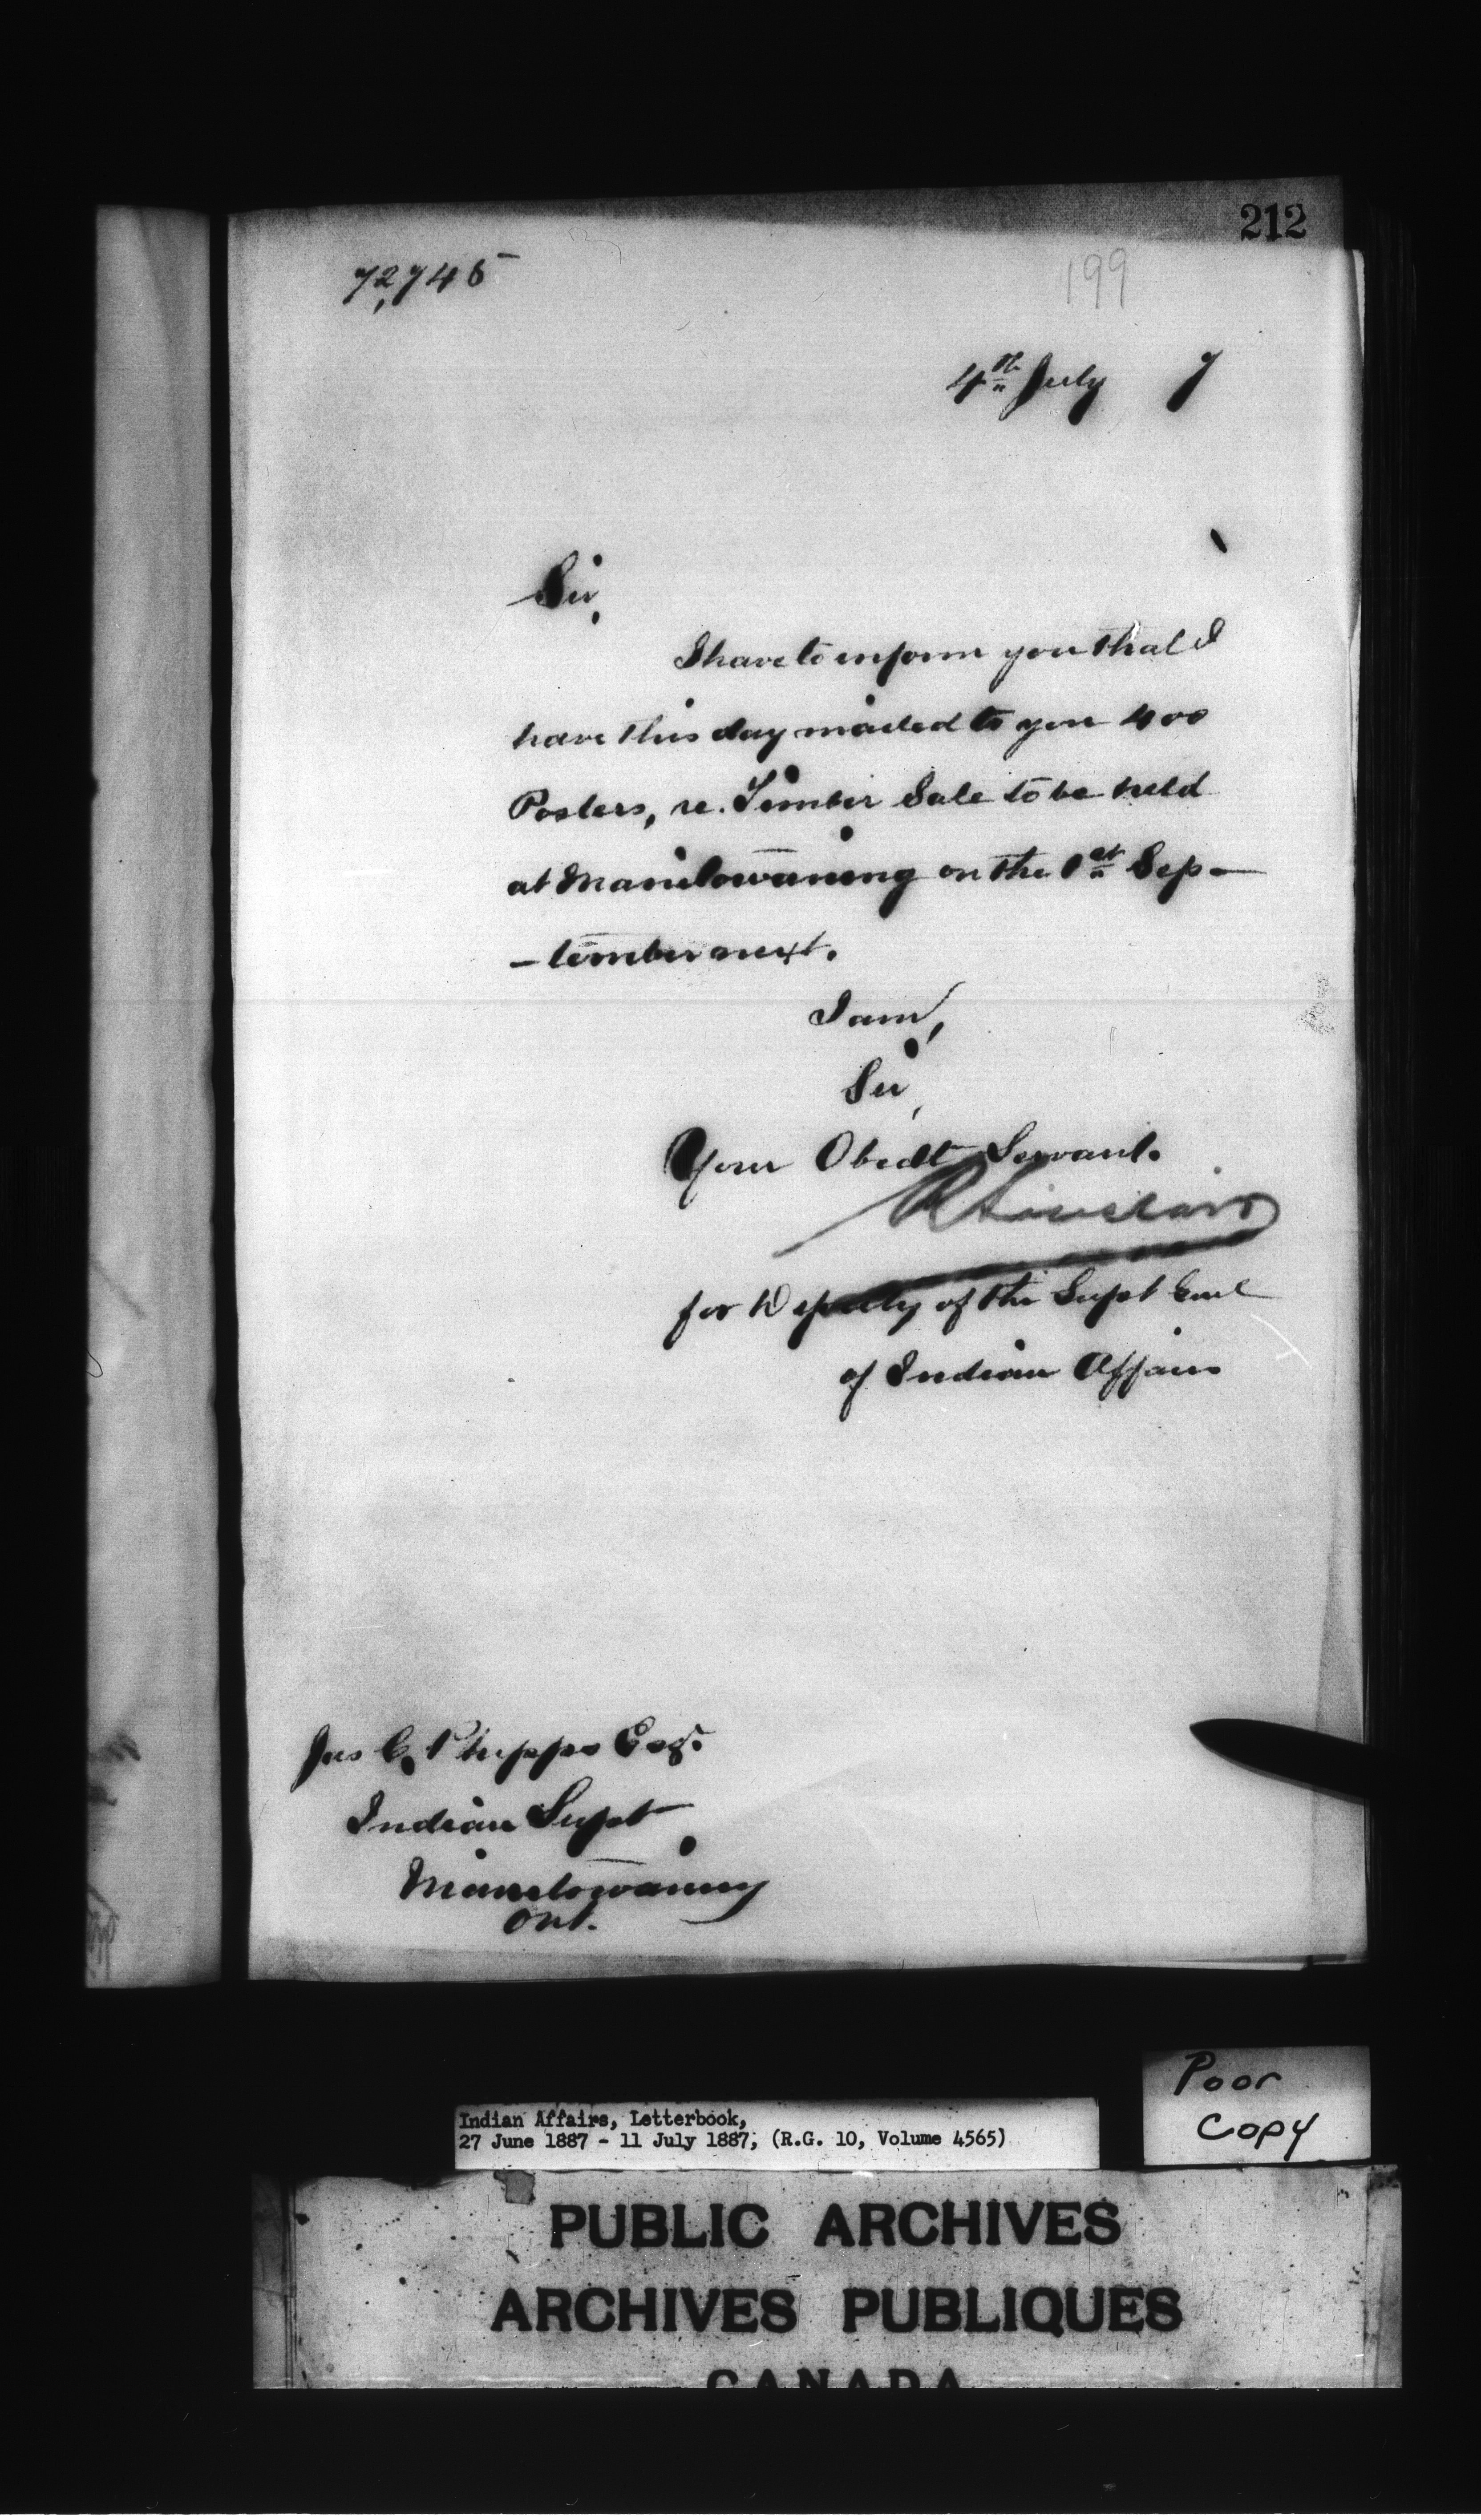 212
72,745
199
4th July 7
Sir,
I have to inform you that I
have this day mailed to you 400
Posters, re. Timber Sale to be held
at Manitowaning on the 1st Sep-
-tember next.
I am,
Sir,
Your Obedt Servant.
R Sinclair
for Deputy of the Supt Genl
of Indian Affairs
Jas C. Phipps Esq.
Indian Supt
Manitowaning
Ont.
Poor
Copy
Indian Affairs, Letterbook,
27 June 1887 - 11 July 1887, (R.G. 10, Volume 4565)
PUBLIC ARCHIVES
ARCHIVES PUBLIQUES
CANADA